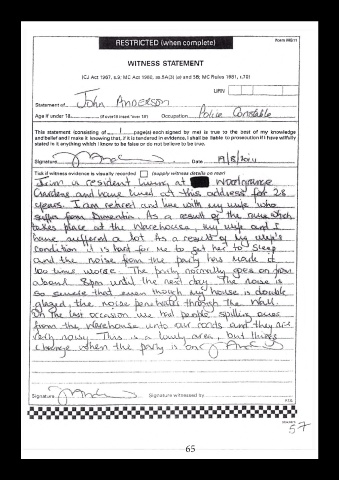 Form MG11
RESTRICTED (when complete)
WITNESS STATEMENT
(CJ Act 1967, s.9; MC Act 1980, ss.5A(3) (a) and 5B; MC Rules 1981, r.70)
URN
Statement of John Anderson
Age if under 18 (if over 18 insert 'over 18') Occupation Police Constable
This statement (consisting of 1 page(s) each signed by me) is true to the best of my knowledge
and belief and I make it knowing that, if it is tendered in evidence, I shall be liable to prosecution if I have wilfully
stated in it anything which I know to be false or do not believe to be true.
Signature Date
Tick if witness evidence is visually recorded (supply witness details on rear)
I am a resident living at
Gardens and have lived at this address for 28
years. I am retired and live with my wife who
suffer from Dementia. As a result of the rave which
takes place at the Warehouse, my wife and I
have suffered a lot. As a result of my wife's
condition it is hard for me to get her to sleep
and the noise from the party has made it
100 times worse. The party normally goes on from
about 8pm until the next day. The noise is
so severe that even though my house is double
glazed, the noise penetrates through the wall.
On the last occasion we had people spilling over
from the warehouse unto our roads and they are
very nosy. This is a lovely area, but things
change when the party is on
Signature Signature witnessed by
57
65